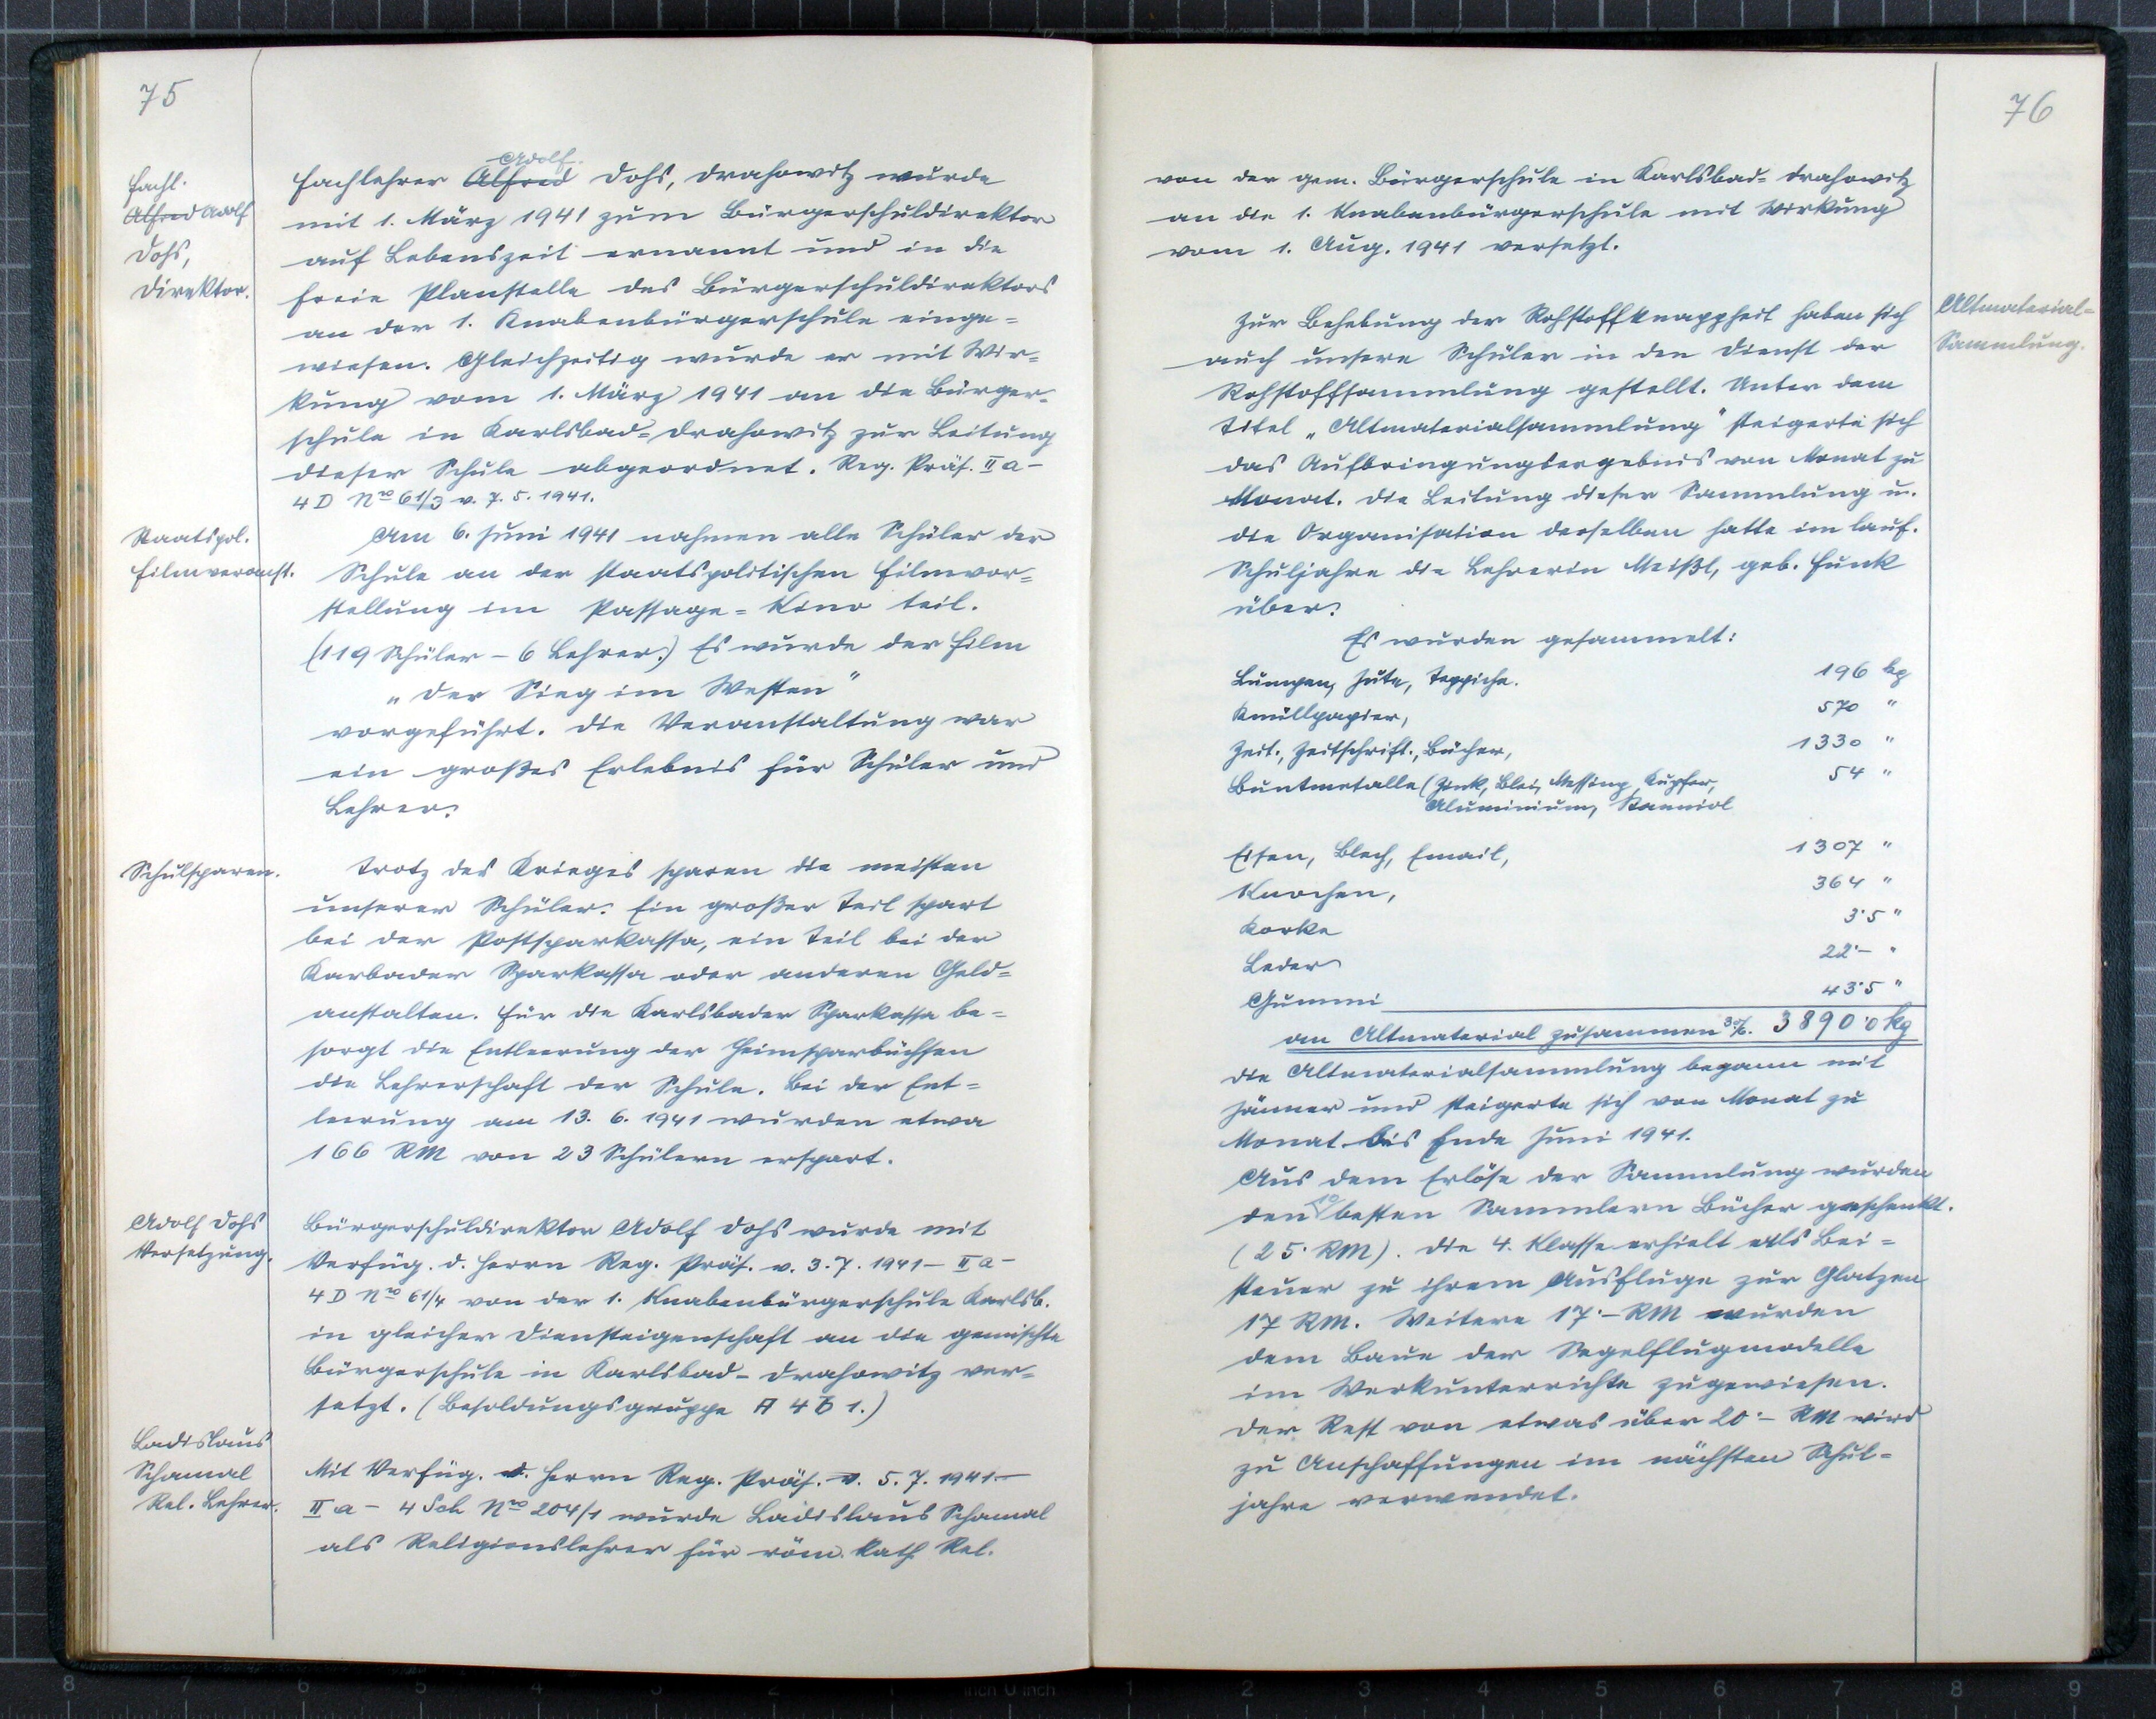 75
Fachl.
Alfred Adolf
Dohs,
Direktor.
Adolf
Fachlehrer Alfred Dohs, Drahowitz wurde
mit 1. März 1941 zum Bürgerschuldirektor
auf Lebenszeit ernannt und in die
freie Planstelle des Bürgerschuldirektors
an der 1. Knabenbürgerschule einge=
wiesen. Gleichzeitig wurde er mit Wir=
kung vom 1. März 1941 an die Bürger=
schule in Karlsbad=Drahowitz zur Leitung
dieser Schule abgeordnet. Reg. Präs. II a –
4 D Nro 61/3 v. 7. 5. 1941.
Staatspol.
Filmveranst.
Am 6. Juni 1941 nahmen alle Schüler der
Schule an der staatspolitischen Filmvor=
stellung im Passage=Kino teil.
(119 Schüler – 6 Lehrer.) Es wurde der Film
„Der Sieg im Westen"
vorgeführt. Die Veranstaltung war
ein großes Erlebnis für Schüler und
Lehrer.
Schulsparen.
Trotz des Krieges sparen die meisten
unserer Schüler. Ein großer Teil spart
bei der Postsparkassa, ein Teil bei der
Karbader Sparkassa oder anderen Geld=
anstalten. Für die Karlsbader Sparkassa be=
sorgt die Entleerung der Heimsparbüchsen
die Lehrerschaft der Schule. Bei der Ent=
leerung am 13. 6. 1941 wurden etwa
166 RM von 23 Schülern erspart.
Adolf Dohs
Versetzung.
Bürgerschuldirektor Adolf Dohs wurde mit
Verfüg. d. Herrn Reg. Präs. v. 3. 7. 1941 – II a –
4 D Nro 61/4 von der 1. Knabenbürgerschule Karlsb.
in gleicher Diensteigenschaft an die gemischte
Bürgerschule in Karlsbad – Drahowitz ver=
setzt. (Besoldungsgruppe A 4 b 1.)
Ladislaus
Schamal
Rel. Lehrer.
Mit Verfüg. d. Herrn Reg. Präs. v. 5. 7. 1941.–
II a – 4 Sch Nro 204/1 wurde Ladislaus Schamal
als Religionslehrer für röm. kath. Rel.
76
von der gem. Bürgerschule in Karlsbad=Drahowitz
an die 1. Knabenbürgerschule mit Wirkung
vom 1. Aug. 1941 versetzt.
Altmaterial=
Sammlung.
Zur Behebung der Rohstoffknappheit haben sich
auch unsere Schüler in den Dienst der
Rohstoffsammlung gestellt. Unter dem
Titel „Altmaterialsammlung" steigerte sich
das Aufbringungsergebnis von Monat zu
Monat. Die Leitung dieser Sammlung u.
die Organisation derselben hatte im lauf.
Schuljahre die Lehrerin Meißl, geb. Funk
über.
Es wurden gesammelt:
Lumpen, Jute, Teppiche. 196 kg
Knüllpapier, 570 "
Zeit., Zeitschrift., Bücher, 1330 "
Buntmetalle (Zink, Blei, Messing, Kupfer, 54 "
Aluminium, Stanniol
Eisen, Blech, Email, 1307 "
Knochen, 364 "
Korke 3·5 "
Leder 22·– "
Gummi 43·5 "
an Altmaterial zusammen 3890·0 kg
Die Altmaterialsammlung begann mit
Jänner und steigerte sich von Monat zu
Monat bis Ende Juni 1941.
Aus dem Erlöse der Sammlung wurden
den 10 besten Sammlern Bücher geschenkt.
(25· RM). Die 4. Klasse erhielt als Bei=
steuer zu ihrem Ausfluge zur Glatzen
17 RM. Weitere 17·– RM wurden
dem Baue der Segelflugmodelle
im Werkunterrichte zugewiesen.
Der Rest von etwas über 20·– RM wird
zu Anschaffungen im nächsten Schul=
jahre verwendet.
8 7 6 5 4 3 2 1 inch 0 inch 1 2 3 4 5 6 7 8 9